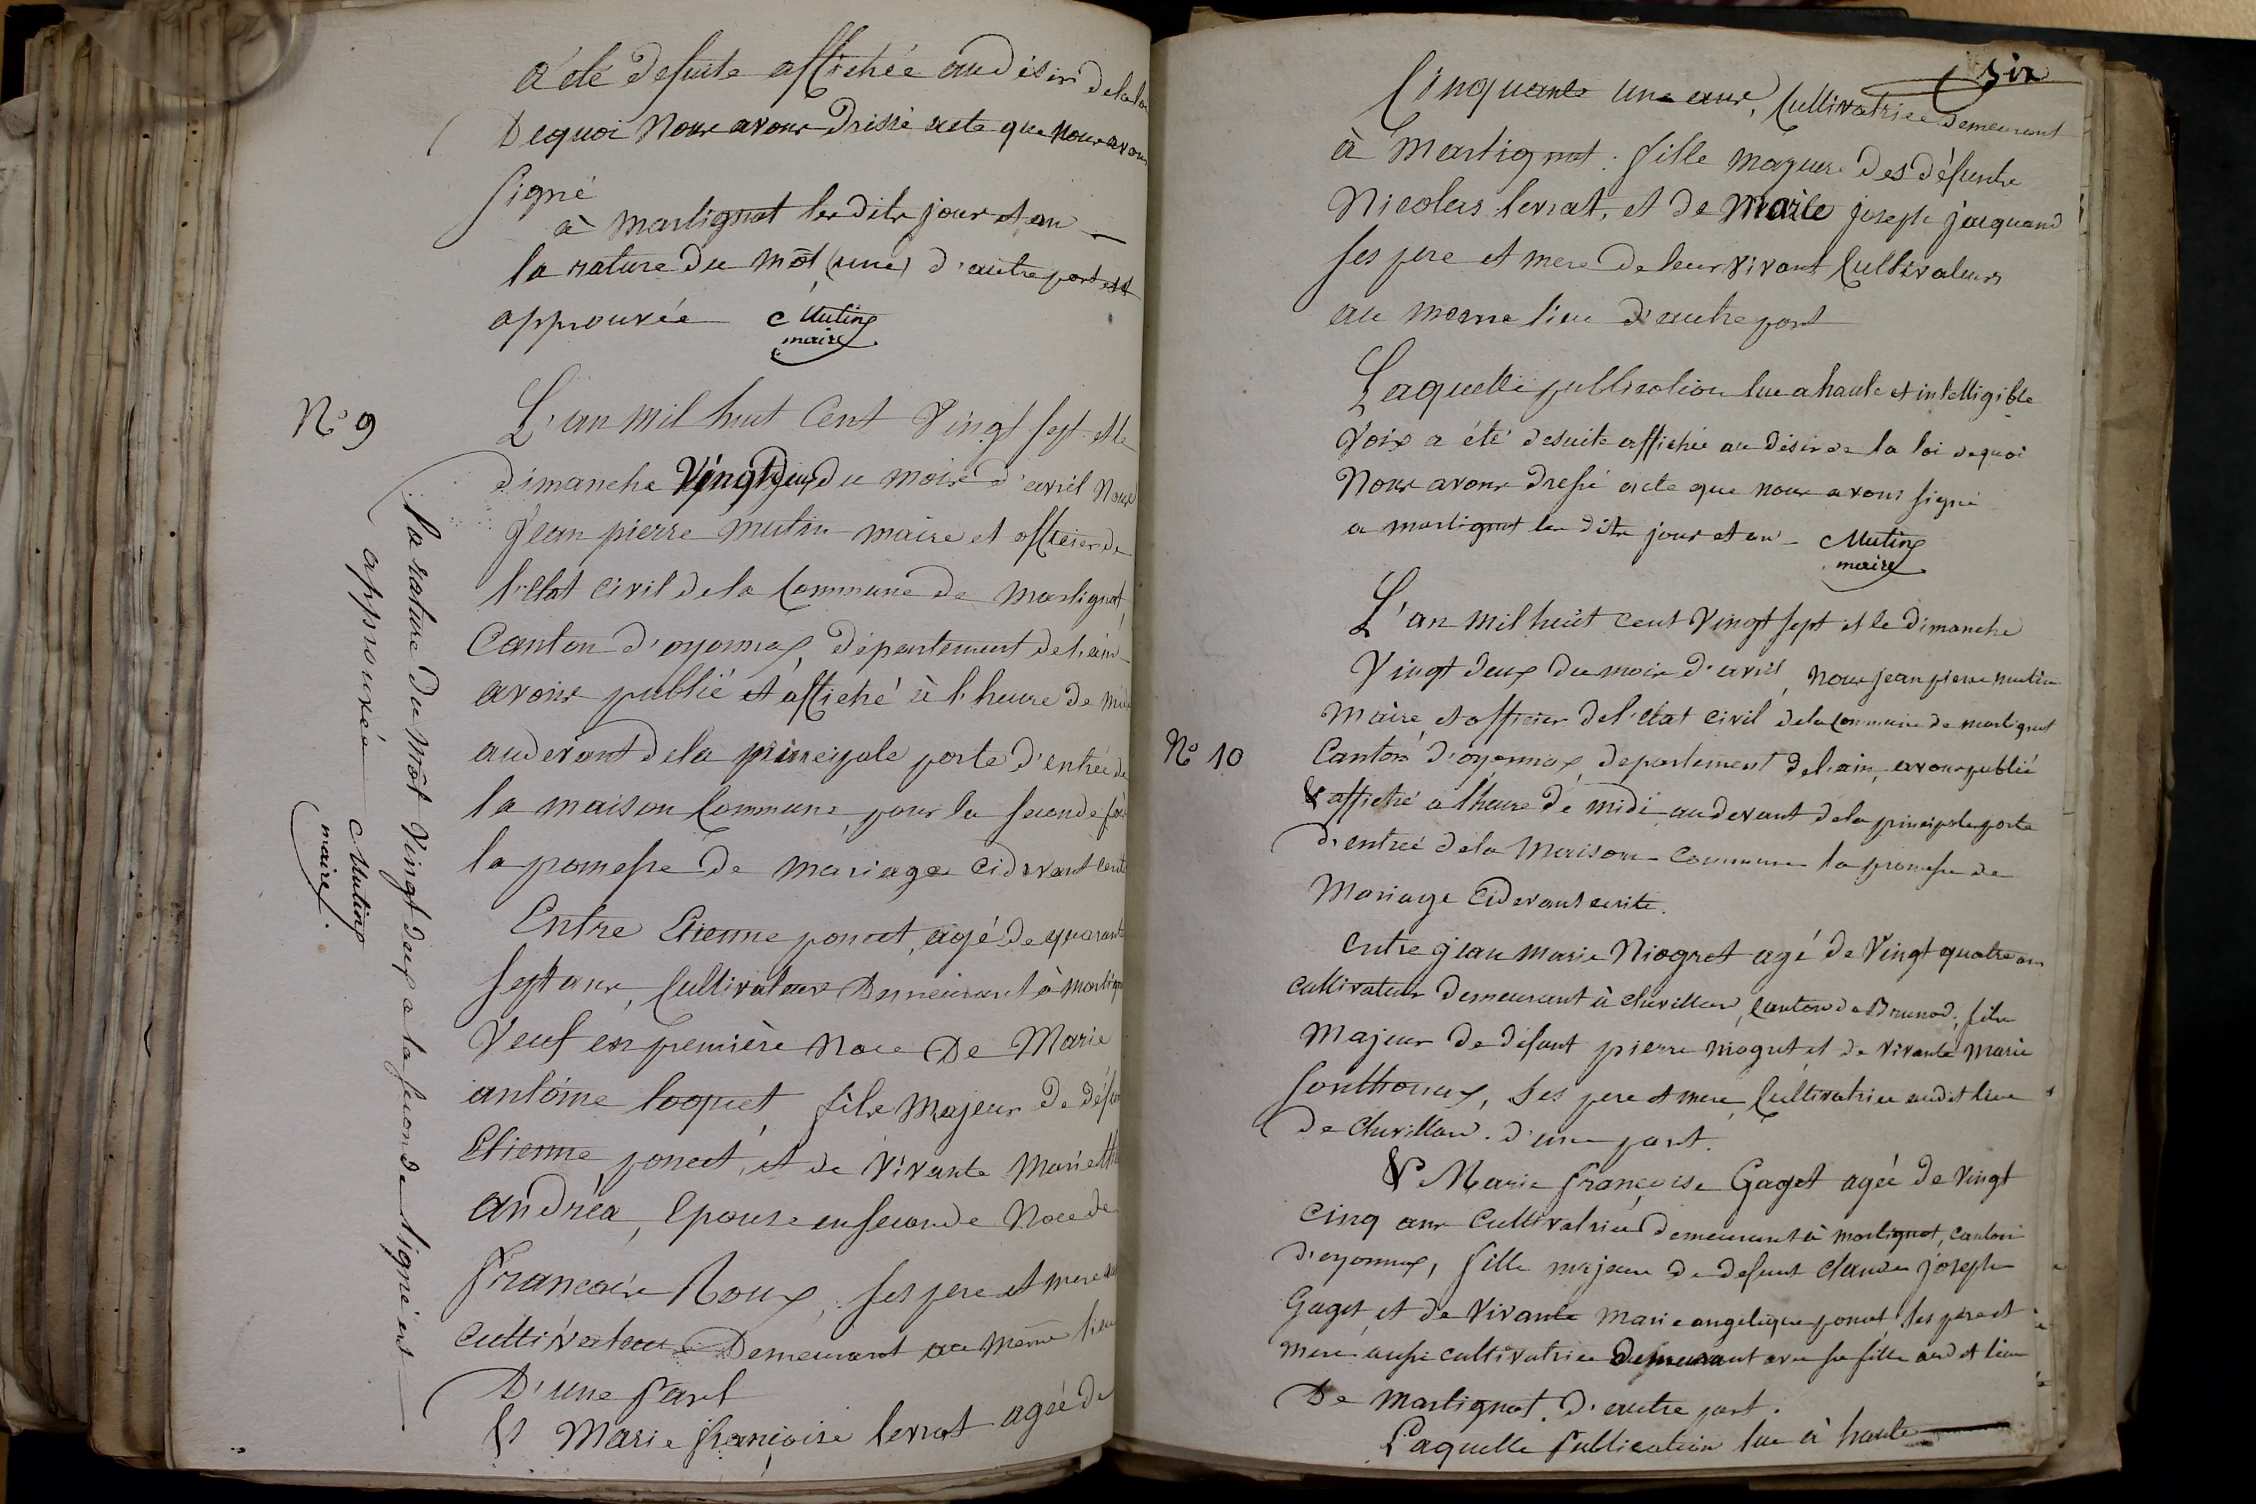 a été desuite affichée au désir de la loi
Dequoi Nous avons Dréssé acte que nous avons
signé
à martignat les dits jour et an
la rature du môt (une) d'autre part est
approuvée Mutin
maire
N° 9
L'an mil huit Cent Vingt sept et le
dimanche Vingt deux du mois d'avril Nous
Jean pierre mutin maire et officier de
l'etat civil de la Commune de martignat
Canton d'oyonnax, département de l'ain
avons publié et affiché à l'heure de midi
audevant de la principale porte d'entrée de
la maison Commune, pour la seconde fois
la promesse de mariage cidevant écrite
Entre Etienne poncet, agé de quarante
sept ans, Cultivateur Demeurant à martignat
Veuf en première Noce De Marie
antoine loquet, fils Majeur de défunt
Etienne poncet, et de Vivante Mariette
andréa, Epouse en seconde Noce de
Francois Roux, ses pere et mere
cultivateur Demeurant au même lieu
D'une part
Et Marie françoise levrat agée de
la rature du Môt Vingt deux a la seconde ligne est
approuvée Mutin
maire
six
Cinquante une ans, Cultivatrice Demeurant
à Martignat. fille majeure des défunts
Nicolas levrat, et de Marie joseph jacquand
ses pere et mere de leur vivant Cultivateurs
au meme lieu d'autre part
Laquelle publication lue a haute et intelligible
Voix a été desuite affichée au désir de la loi dequoi
Nous avons dressé acte que nous avons signé
a martignat les dits jour et an Mutin
maire
N° 10
L'an mil huit cent Vingt sept et le dimanche
Vingt deux du mois d'avril, Nous jean pierre mutin
Maire et officier de l'etat civil de la Commune de martignat
Canton d'oyonnax, departement de l'ain, avons publié
& affiché a l'heure de midi audevant de la principale porte
d'entrée de la Maison Commune la promesse de
Mariage Cidevant ecrite.
Entre jean marie Niogret agé de Vingt quatre ans
cultivateur demeurant à chevillard, Canton de Brenod, fils
Majeur de défunt pierre niogret et de vivante Marie
Sonthonax, ses pere et mere, Cultivatrice audit lieu
de Chevillard. d'une part.
& Marie françoise Gaget agée de Vingt
Cinq ans Cultivatrice demeurant à martignat, canton
d'oyonnax, fille majeure de defunt claude joseph
Gaget, et de Vivante Marie angelique poncet ses pere et
mere aussi cultivatrice Demeurant avec sa fille audit lieu
De Martignat. D'autre part.
Laquelle publication lue à haute